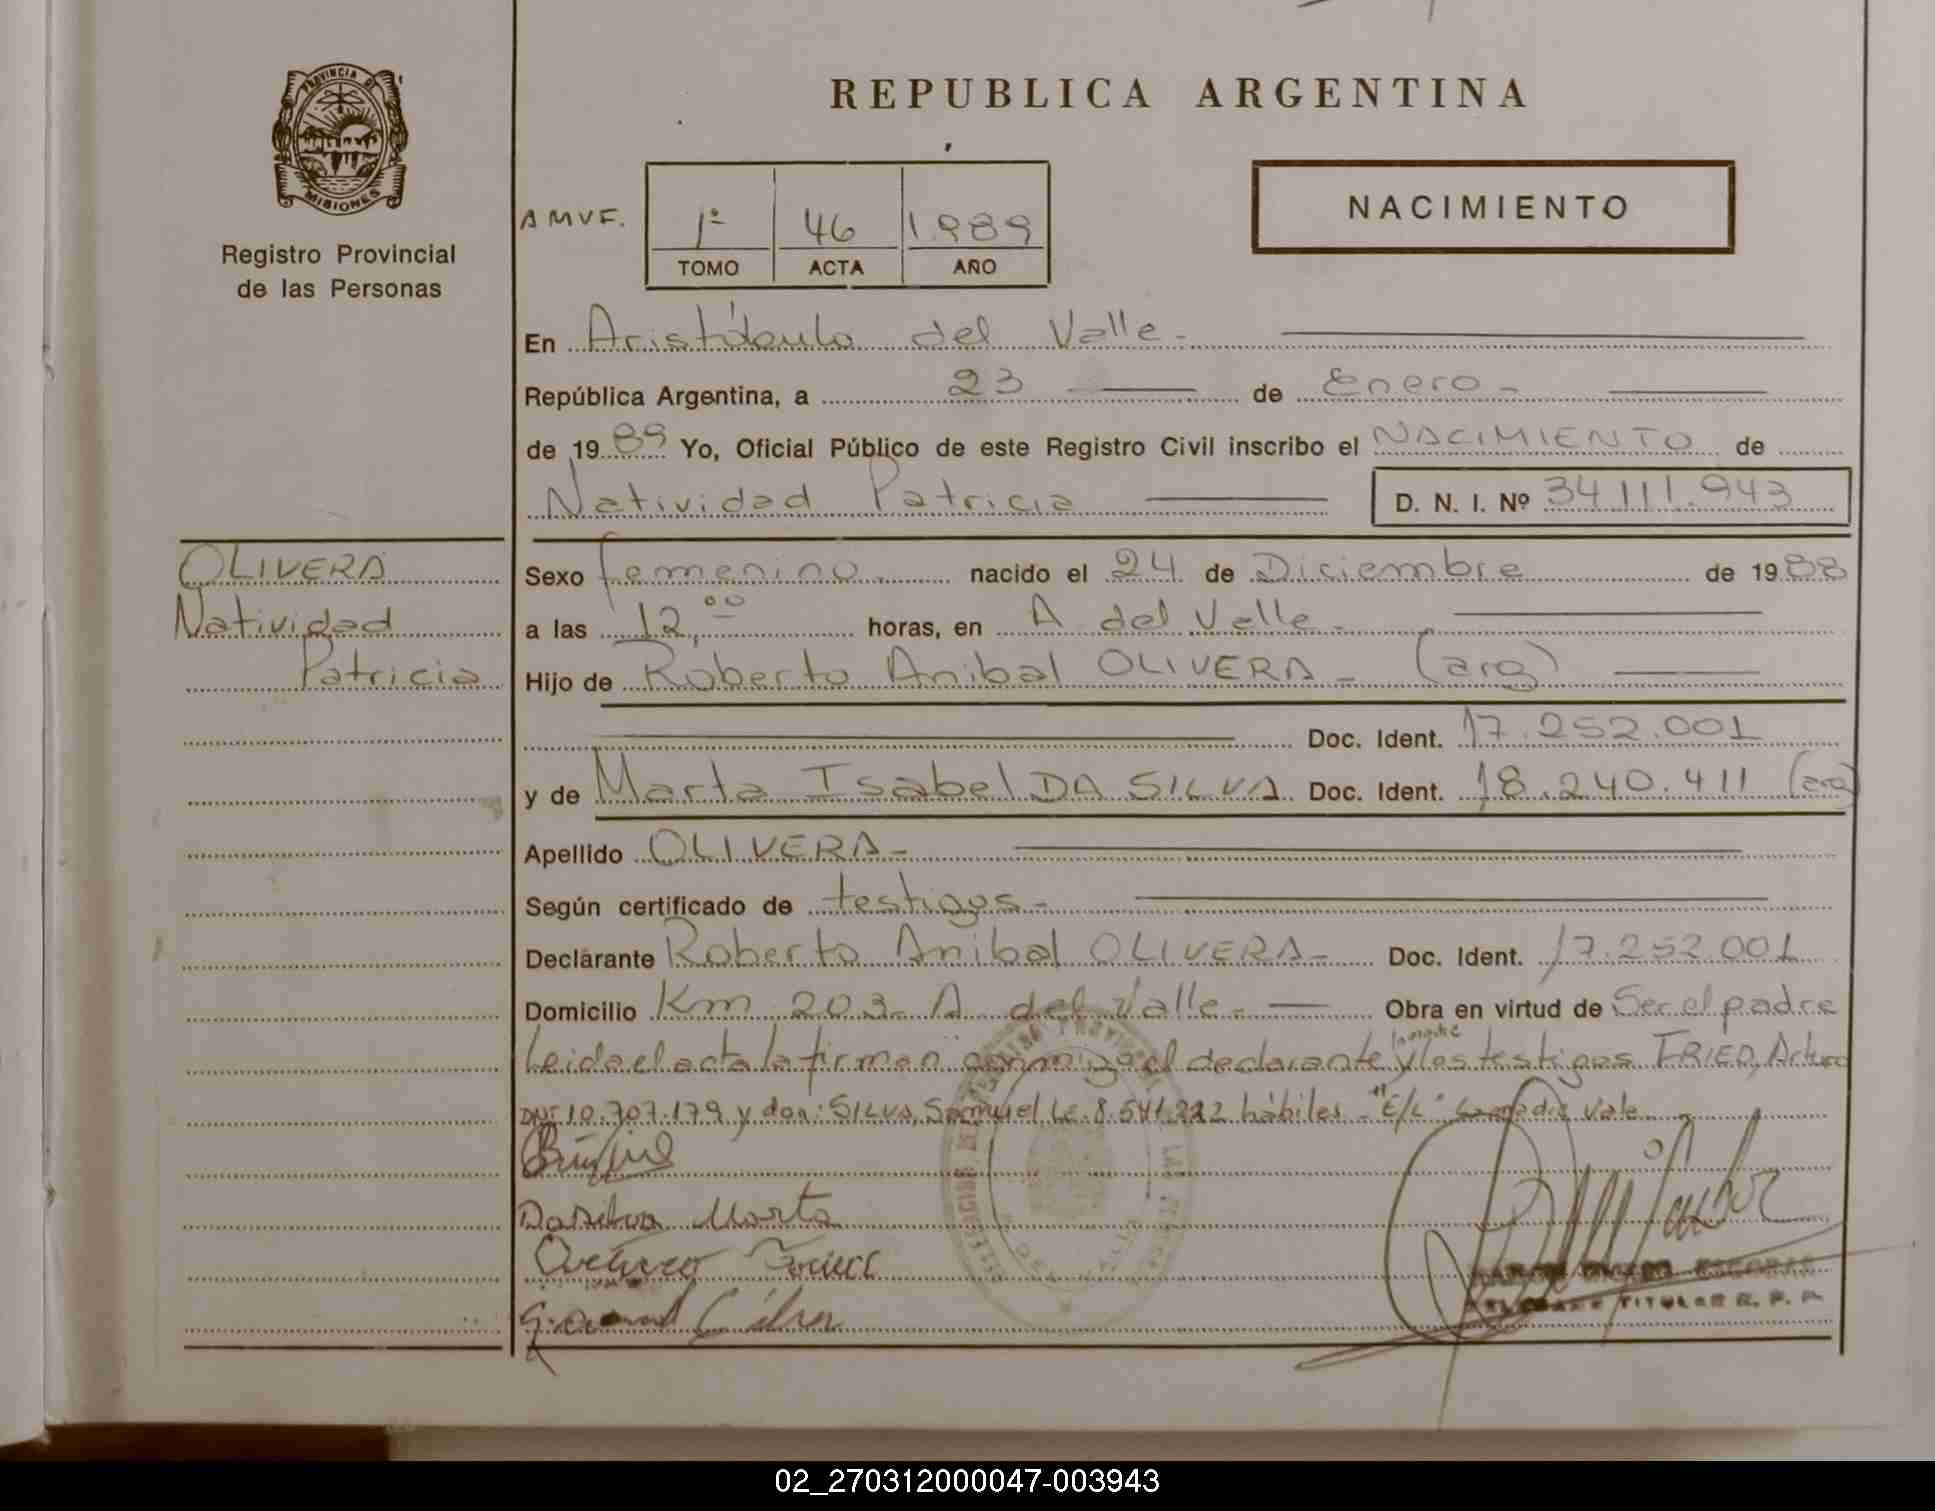 PROVINCIA DE
MISIONES
Registro Provincial
de las Personas
OLIVERA
Natividad
Patricia
REPUBLICA ARGENTINA
NACIMIENTO
AMVF.
1º 46 1.989
TOMO ACTA AÑO
En Aristóbulo del Valle.-
República Argentina, a 23 de Enero.-
de 1989 Yo, Oficial Público de este Registro Civil inscribo el NACIMIENTO de
Natividad Patricia D. N. I. Nº 34.111.943
Sexo femenino. nacido el 24 de Diciembre de 1988
a las 12,00 horas, en A. del Valle.-
Hijo de Roberto Anibal OLIVERA.- (arg)
Doc. Ident. 17.252.001
y de Marta Isabel DA SILVA Doc. Ident. 18.240.411 (arg)
Apellido OLIVERA.-
Según certificado de testigos.-
Declarante Roberto Anibal OLIVERA.- Doc. Ident. 17.252.001
Domicilio Km 203- A. del Valle.- Obra en virtud de Ser el padre
la madre
Leida el acta la firman conmigo el declarante y los testigos FRIED, Arturo
DNI 10.707.179 y don: SILVA, Samuel, LE. 8.541.222 hábiles.- "E/L" la madre Vale
Dasilva Marta
Arturo
ESCOBAR
TITULAR R. P. P.
02_270312000047-003943